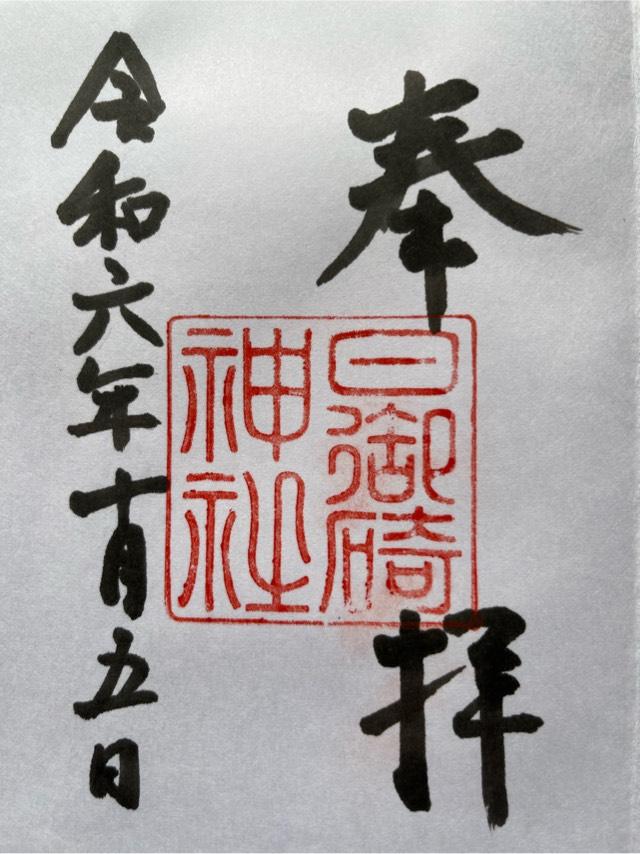 奉拝
日御碕
神社
令和六年十月五日